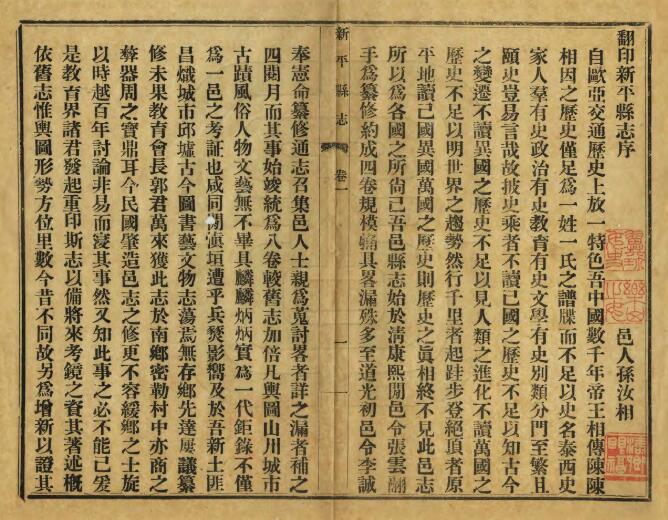 翻印新平縣志序
邑人孫汝相
自歐亞交通歷史上放一特色吾中國數千年帝王相傳陳陳
相因之歷史僅足爲一姓一氏之譜牒而不足以史名泰西史
家人羣有史政治有史敎育有史文學有史別類分門至繁且
頤史豈易言哉故披史乘者不讀已國之歷史不足以知古今
之變遷不讀異國之歷史不足以見人類之進化不讀萬國之
歷史不足以明世界之趨勢然行千里者起跬步登絕頂者原
平地讀已國異國萬國之歷史則歷史之眞相終不見此邑志
所以爲各國之所尙已吾邑縣志始於淸康熙間邑令張雲翮
手爲纂修約成四卷規模粗具畧漏殊多至道光初邑令李誠
新平縣志
卷一
一
奉憲命纂修通志召集邑人士親爲蒐討畧者詳之漏者補之
四閱月而其事始竣統爲八卷較舊志加倍凡輿圖山川城市
古蹟風俗人物文藝無不畢具麟麟炳炳實爲一代鉅錄不僅
爲一邑之考証也咸同間滇垣遭乎兵燹影嚮及於吾新土匪
昌熾城市邱墟古今圖書藝文物志蕩焉無存鄉先達屢議纂
修未果敎育會長郭君萬來獲此志於南鄉密勒村中亦商之
彜器周之寶鼎耳今民國肇造邑志之修更不容緩鄉之士旋
以時越百年討論非易而寢其事然又知此事之必不能已爰
是敎育界諸君發起重印斯志以備將來考鏡之資其著述槪
依舊志惟輿圖形勢方位里數今昔不同故另爲增新以證其